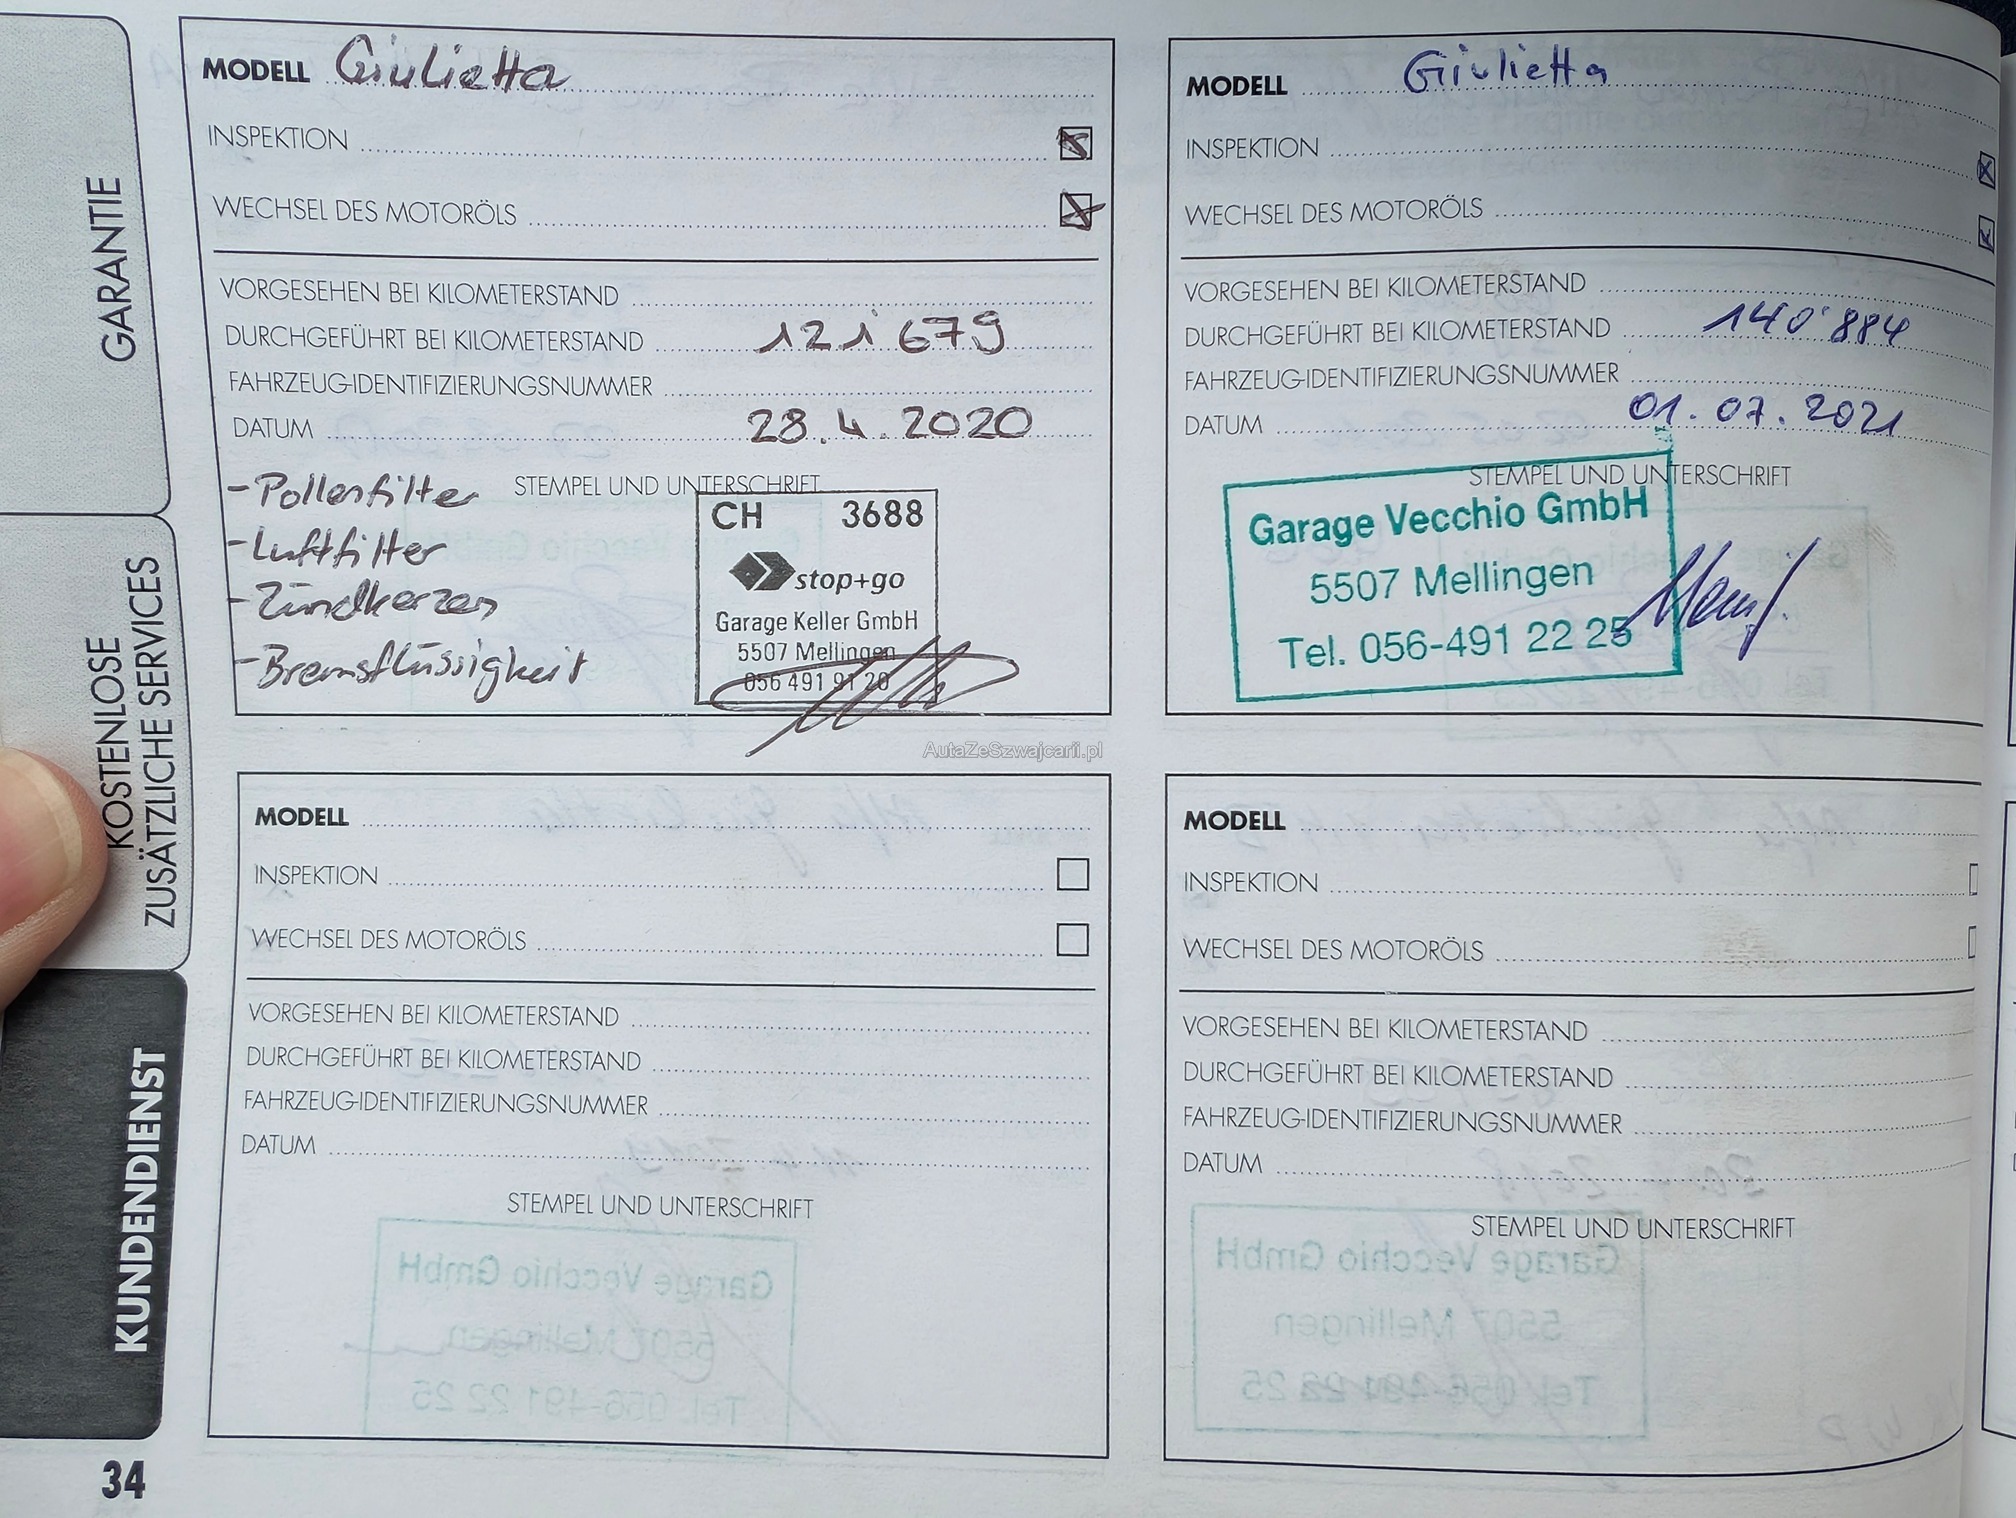 GARANTIE
KOSTENLOSE
ZUSÄTZLICHE SERVICES
KUNDENDIENST
34
MODELL Giulietta
INSPEKTION
WECHSEL DES MOTORÖLS
VORGESEHEN BEI KILOMETERSTAND
DURCHGEFÜHRT BEI KILOMETERSTAND 121'679
FAHRZEUG-IDENTIFIZIERUNGSNUMMER
DATUM 28.4.2020
STEMPEL UND UNTERSCHRIFT
-Pollenfilter
-Luftfilter
-Zündkerzen
-Bremsflüssigkeit
CH 3688
stop+go
Garage Keller GmbH
5507 Mellingen
056 491 91 20
MODELL Giulietta
INSPEKTION
WECHSEL DES MOTORÖLS
VORGESEHEN BEI KILOMETERSTAND
DURCHGEFÜHRT BEI KILOMETERSTAND 140'884
FAHRZEUG-IDENTIFIZIERUNGSNUMMER
DATUM 01.07.2021
STEMPEL UND UNTERSCHRIFT
Garage Vecchio GmbH
5507 Mellingen
Tel. 056-491 22 25
AutaZeSzwajcarii.pl
MODELL
INSPEKTION
WECHSEL DES MOTORÖLS
VORGESEHEN BEI KILOMETERSTAND
DURCHGEFÜHRT BEI KILOMETERSTAND
FAHRZEUG-IDENTIFIZIERUNGSNUMMER
DATUM
STEMPEL UND UNTERSCHRIFT
Garage Vecchio GmbH
5507 Mellingen
Tel. 056-491 22 25
MODELL
INSPEKTION
WECHSEL DES MOTORÖLS
VORGESEHEN BEI KILOMETERSTAND
DURCHGEFÜHRT BEI KILOMETERSTAND
FAHRZEUG-IDENTIFIZIERUNGSNUMMER
DATUM
STEMPEL UND UNTERSCHRIFT
Garage Vecchio GmbH
5507 Mellingen
Tel. 056-491 22 25